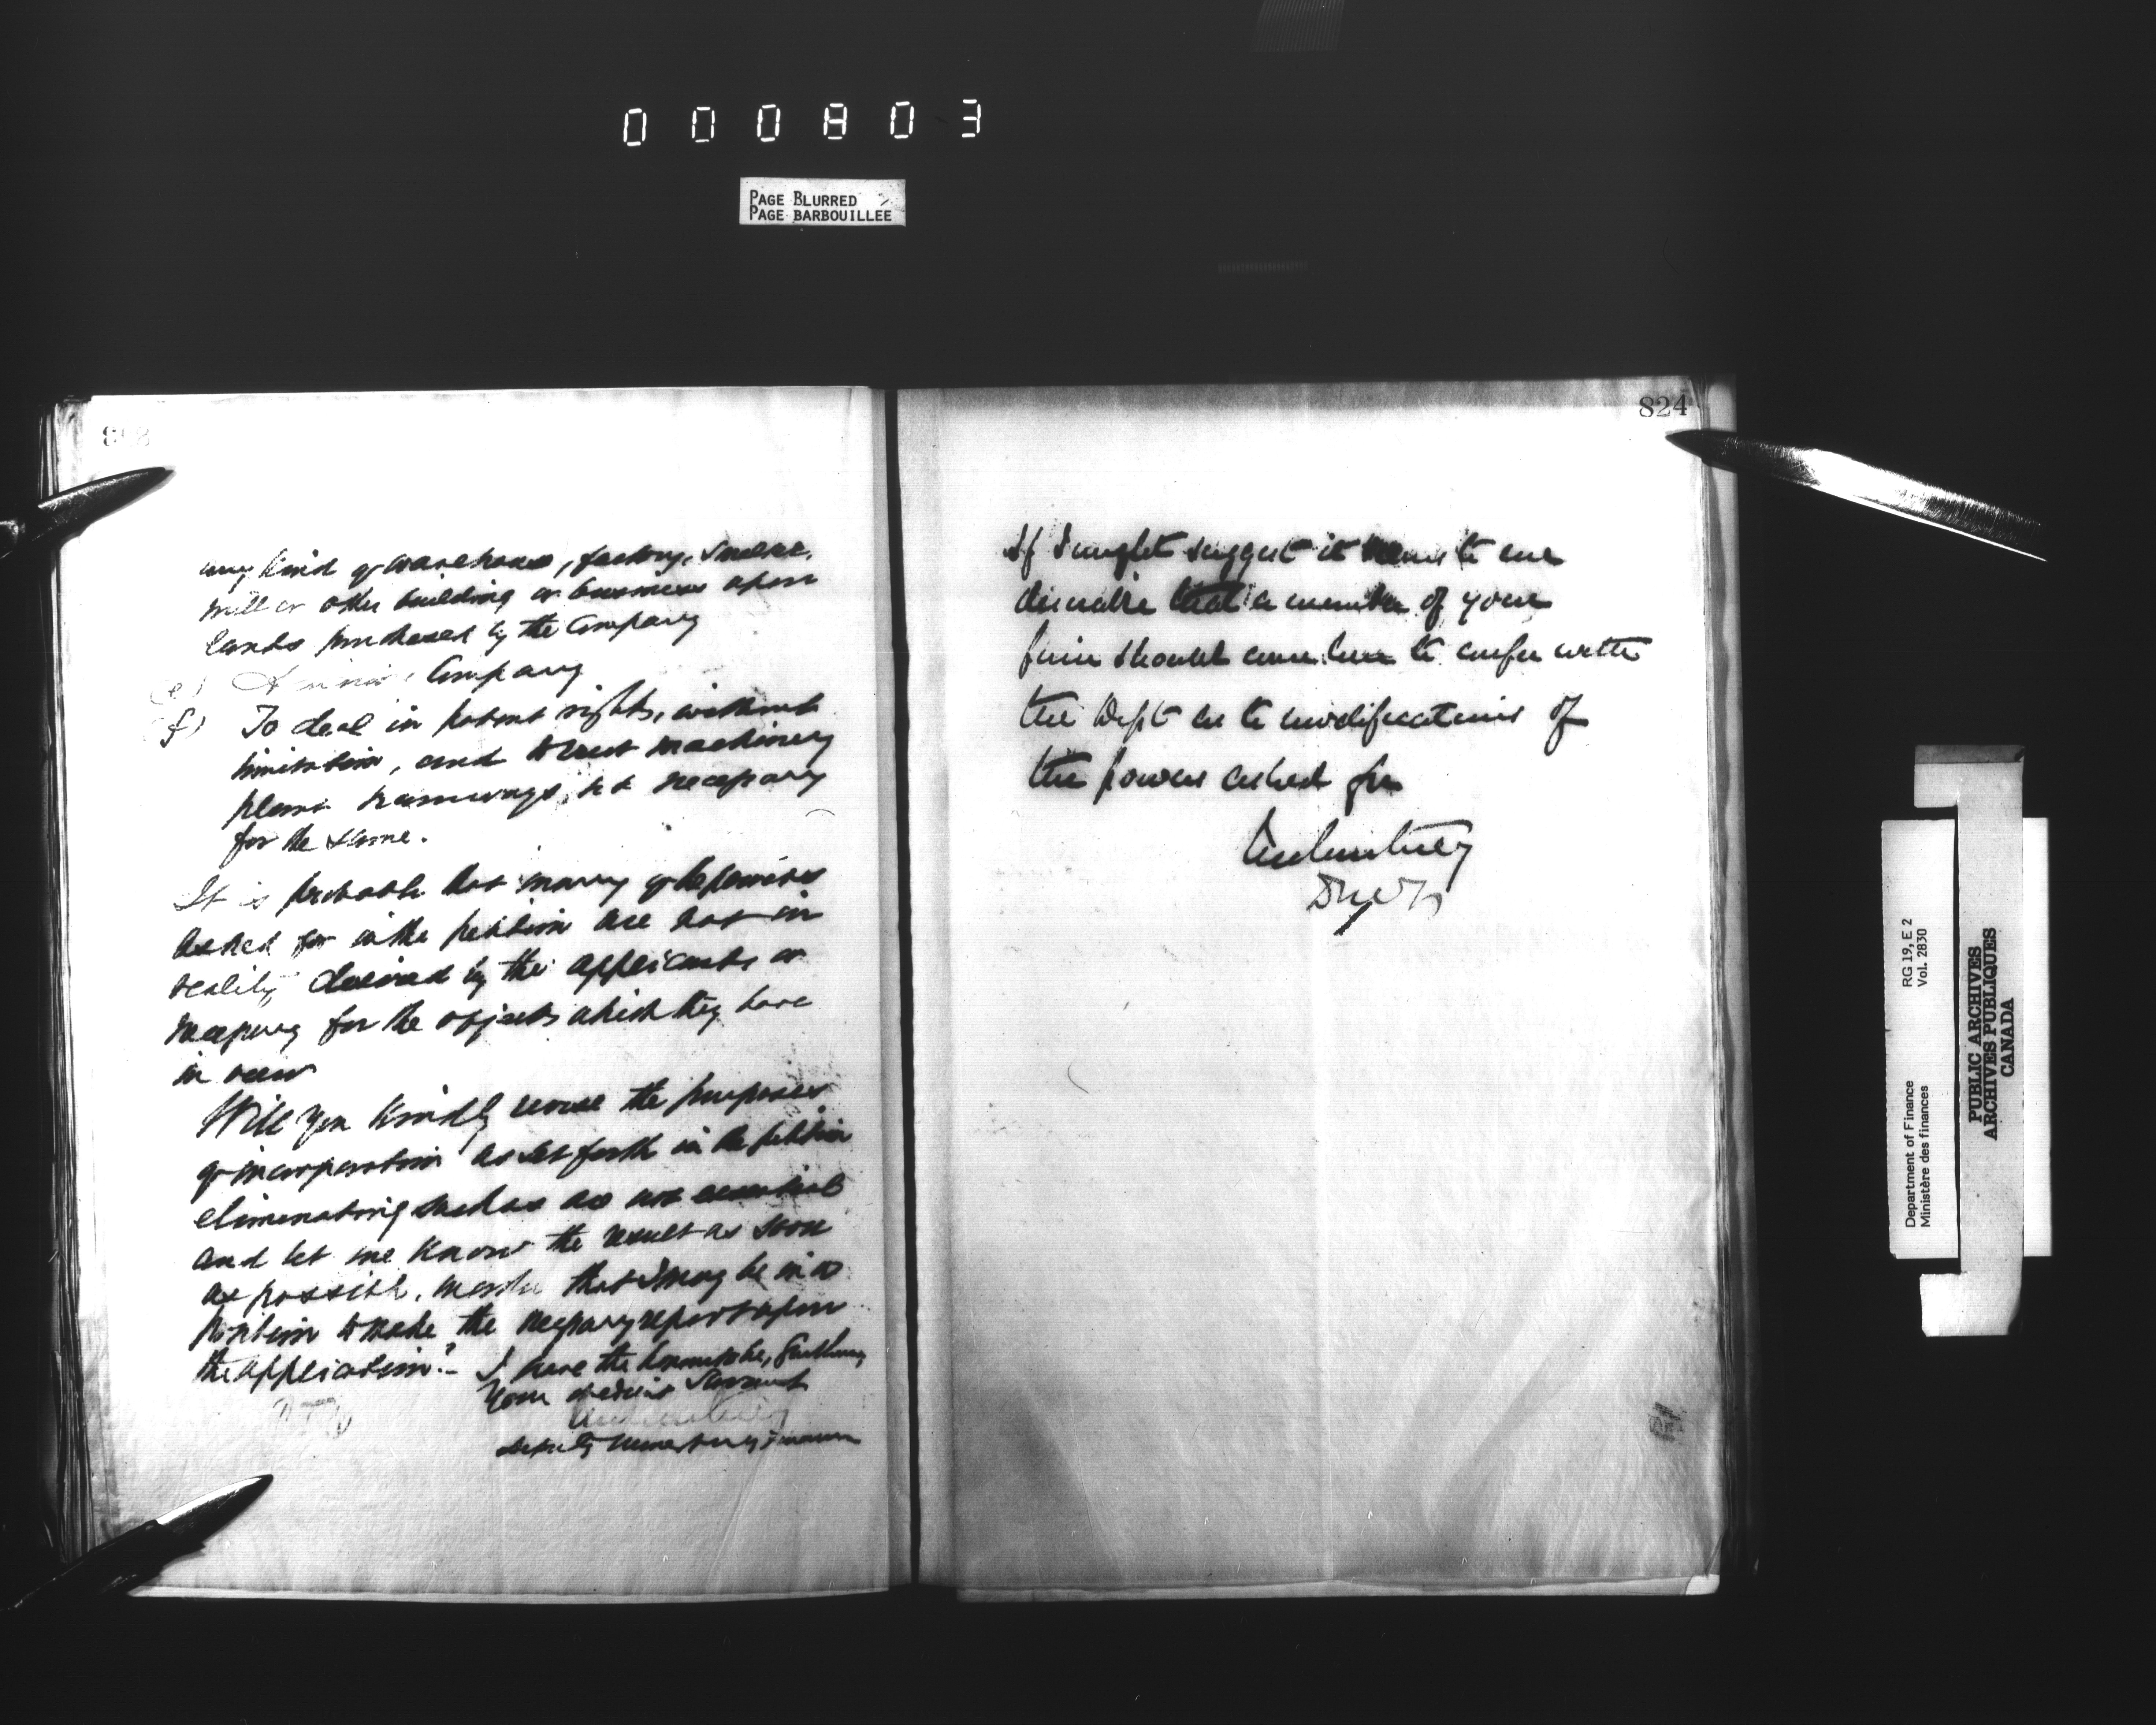 000803
PAGE BLURRED
PAGE BARBOUILLEE
any kind of warehouse, factory, smelter,
mill or other building or business upon
lands purchased by the Company
(e) Company
(f) To deal in patent rights, without
limitation, and to erect machinery
plant tramways, &c necessary
for the same.
It is probable that many of the powers
asked for in the petition are not in
reality desired by the applicants or
necessary for the objects which they have
in view
Will you kindly revise the purposes
of incorporation as set forth in the petition
eliminating such as are not essential
and let me know the result as soon
as possible, that I may be in a
position to make the necessary report upon
the application? - I have the honour to be, Gentlemen
Your obedient Servant
Deputy Minister of Finance
824
If I might suggest it seems to me
desirable that a member of your
firm should come here to confer with
the Dept as to modifications of
the powers asked for
Courtney
RG 19, E 2
Vol. 2830
Department of Finance
Ministère des finances
PUBLIC ARCHIVES
ARCHIVES PUBLIQUES
CANADA